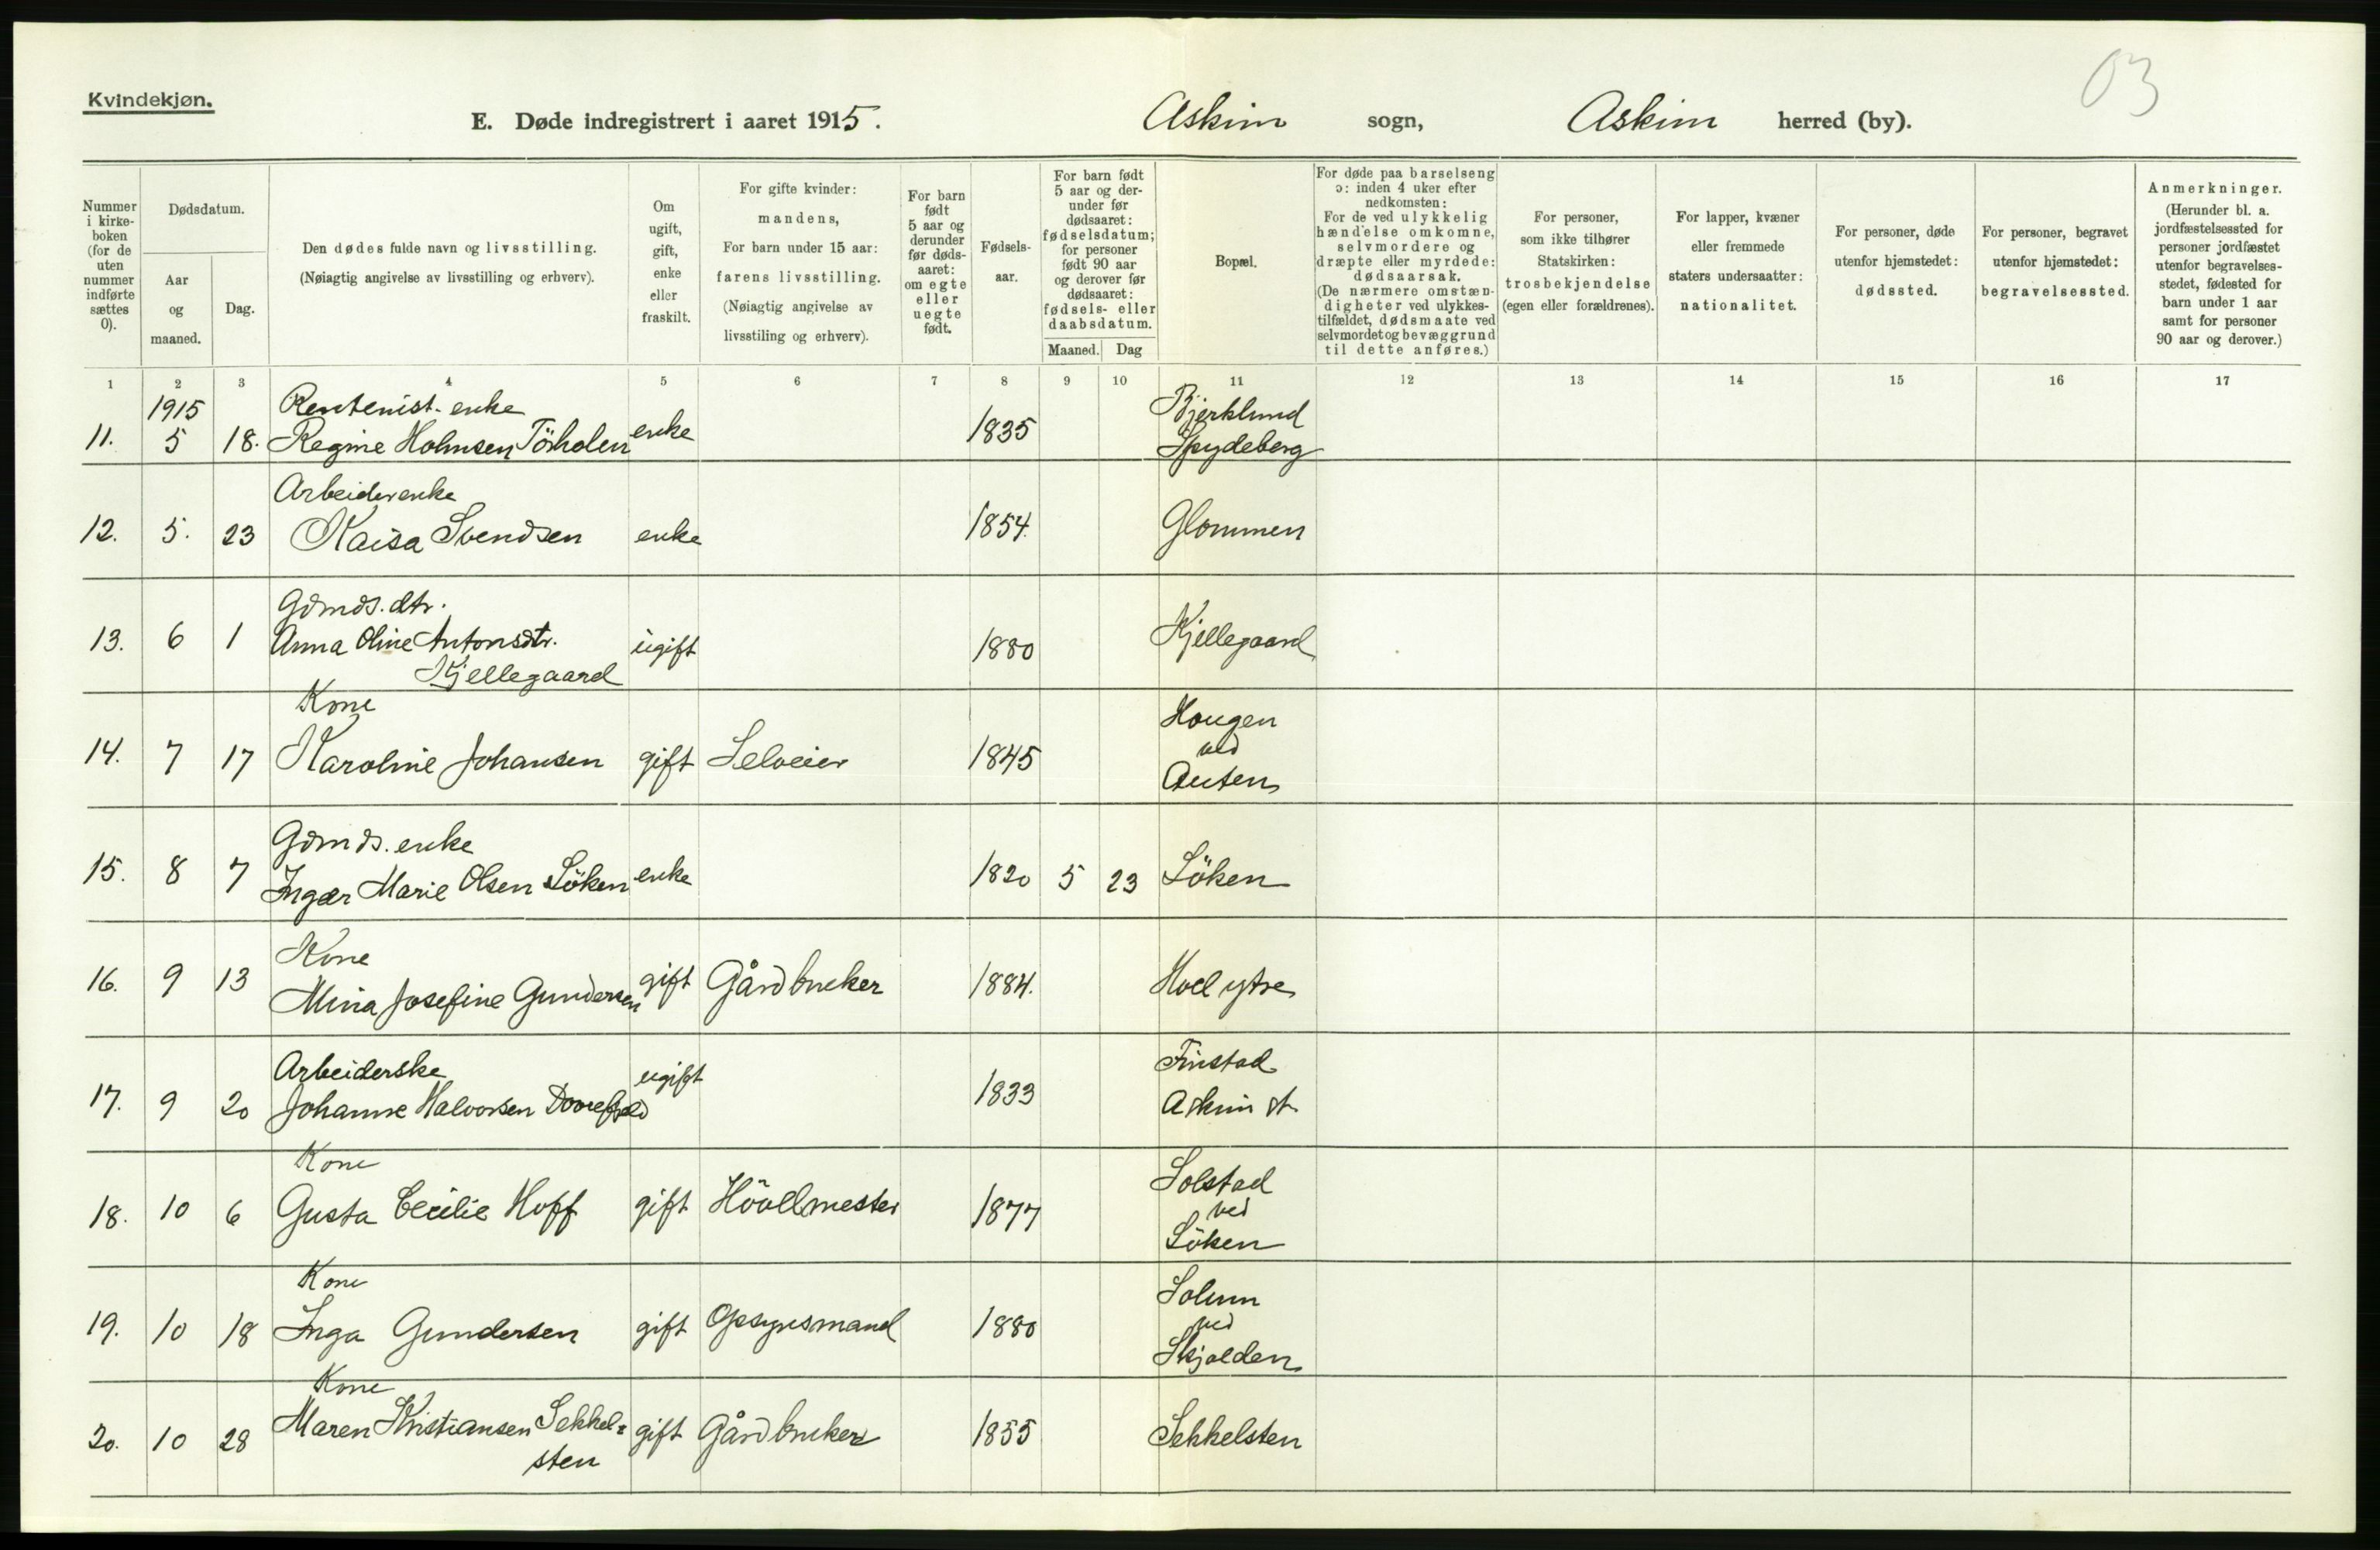 03
Kvindekjøn.
E. Døde indregistrert i aaret 1915. Askim sogn, Askim herred (by).
Nummer i kirke-boken (for de uten nummer indførte sættes 0).
Dødsdatum.
Aar og maaned.
Dag.
Den dødes fulde navn og livsstilling.
(Nøiagtig angivelse av livsstilling og erhverv).
Om ugift, gift, enke eller fraskilt.
For gifte kvinder: mandens,
For barn under 15 aar: farens livsstilling.
(Nøiagtig angivelse av livsstiling og erhverv).
For barn født 5 aar og derunder før døds-aaret: om egte eller uegte født.
Fødsels-aar.
For barn født 5 aar og der-under før dødsaaret: fødselsdatum; for personer født 90 aar og derover før dødsaaret: fødsels- eller daabsdatum.
Maaned. Dag
Bopæl.
For døde paa barselseng ɔ: inden 4 uker efter nedkomsten:
For de ved ulykkelig hændelse omkomne, selvmordere og dræpte eller myrdede: dødsaarsak.
(De nærmere omstæn-digheter ved ulykkes-tilfældet, dødsmaate ved selvmordet og bevæggrund til dette anføres.)
For personer, som ikke tilhører Statskirken: trosbekjendelse (egen eller forældrenes).
For lapper, kvæner eller fremmede staters undersaatter: nationalitet.
For personer, døde utenfor hjemstedet: dødssted.
For personer, begravet utenfor hjemstedet: begravelsessted.
Anmerkninger.
(Herunder bl. a. jordfæstelsessted for personer jordfæstet utenfor begravelses-stedet, fødested for barn under 1 aar samt for personer 90 aar og derover.)
1 2 3 4 5 6 7 8 9 10 11 12 13 14 15 16 17
1915 Rentenist-enke Bjerklund
11. 5 18. Regine Holmsen Törholen enke 1835 Spydeberg
Arbeiderenke
12. 5. 23 Kaisa Svendsen enke 1854. Glommen
Gdmds. dtr.
13. 6 1 Anna Oline Antonsdtr. ugift 1880 Kjellegaard
Kjellegaard
Kone Hougen
ved
14. 7 17 Karoline Johansen gift Selveier 1845 Auten
Gdmds. enke
15. 8 7 Inger Marie Olsen Löken enke 1820 5 23 Löken
Kone
16. 9 13 Mina Josefine Gundersen gift Gårdbruker 1884. Hoel ytre
Arbeiderske Finstad
17. 9 20 Johanne Halvorsen Dovrefjeld ugift 1833 Askim st.
Kone Solstad
ved
18. 10 6 Gusta Cecilie Hoff gift Hövelmester 1877 Löken
Kone Solum
ved
19. 10 18 Inga Gundersen gift Opsynsmand 1880 Skjolden
Kone
20. 10 28 Maren Kristiansen Sekkel= gift Gårdbruker 1855 Sekkelsten
sten